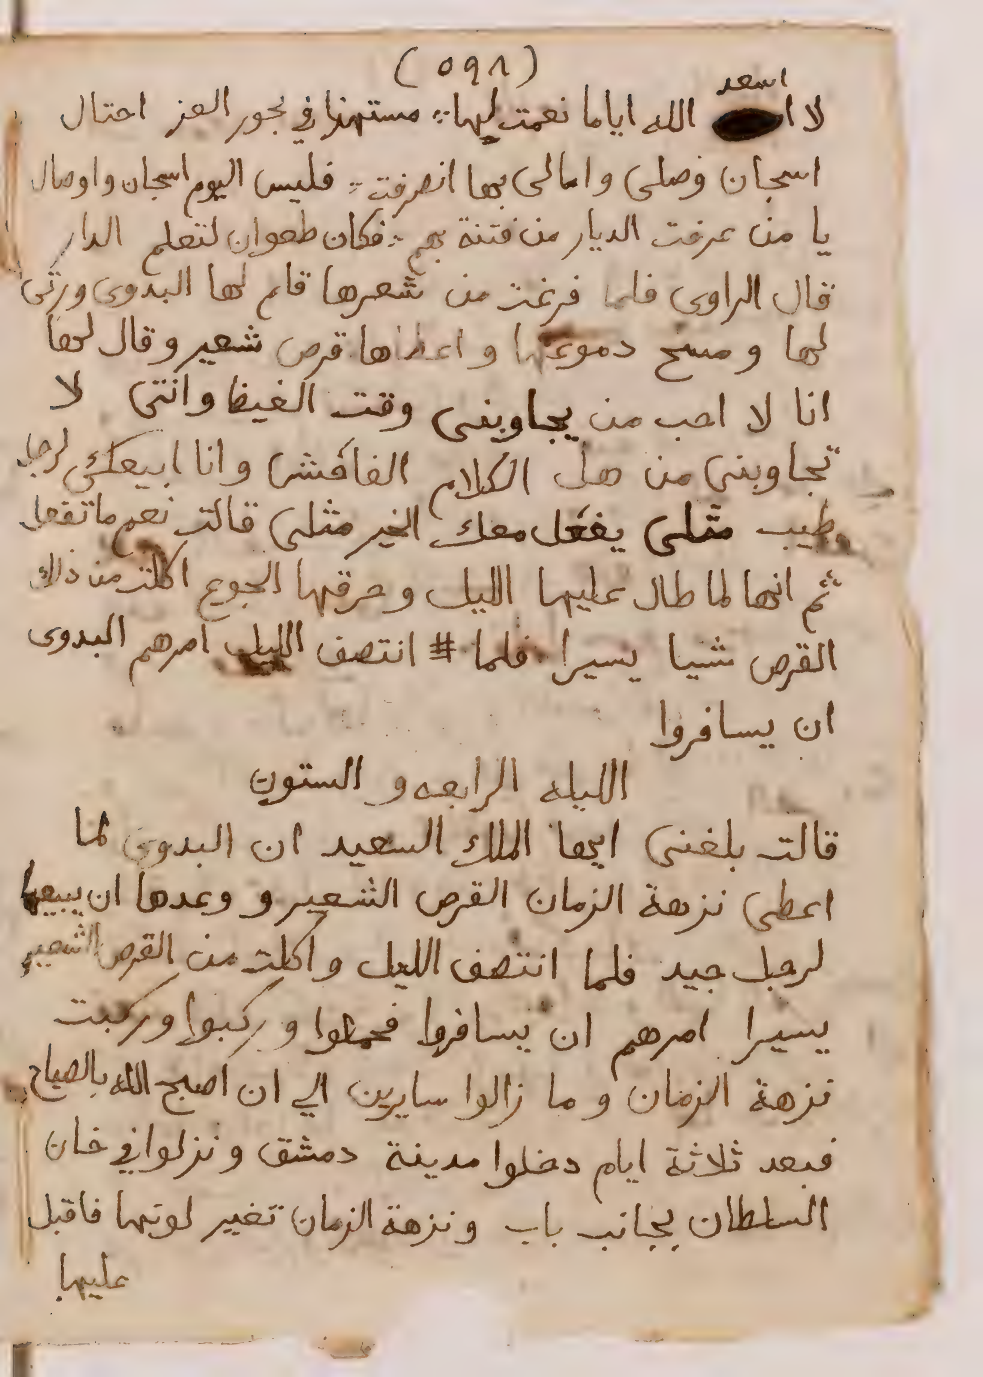 (٥٩٨)
اسعد
لا الله اياما نعمت لها مستهزا في بحور العز احتال
اسجان وصلى وامالى بها انصرفت فليس اليوم اسجان واوصال
يا من عرفت الديار من فتنة بهم فكان طعوان لتعلم الدار
قال الراوى فلما فرغت من شعرها قام لها البدوى ورتى
لها ومسح دموعها واعطاها قرص شعير وقال لها
انا لا احب من يجاوبنى وقت الغيظ وانتى لا
تجاوبنى من هل الكلام الفاحش وانا ابيعك لرجل
طيب مثلى يفعل معك الخير مثلى قالت نعم ما تفعل
ثم انها لما طال عليها الليل وحرقها الجوع اكلت من ذلك
القرص شيا يسيرا فلما # انتصف الليل امرهم البدوى
ان يسافروا
الليله الرابعه و الستون
قالت بلغنى ايها الملك السعيد ان البدوى لما
اعطى نزهة الزمان القرص الشعير و وعدها ان يبيعها
لرجل جيد فلما انتصف الليل واكلت من القرص الشعير
يسيرا امرهم ان يسافروا فحملوا وركبوا وركبت
نزهة الزمان وما زالوا سايرين الي ان اصبح الله بالصباح
فبعد ثلاثة ايام دخلوا مدينة دمشق ونزلوا في خان
السلطان بجانب باب ونزهة الزمان تغير لونها فاقبل
عليها